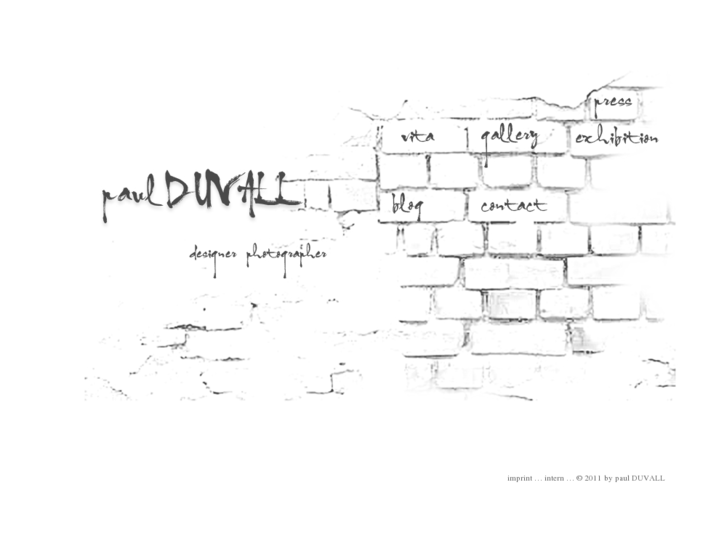 press
vita gallery exhibition
paul DUVALL
blog contact
designer photographer
imprint ... intern ... © 2011 by paul DUVALL